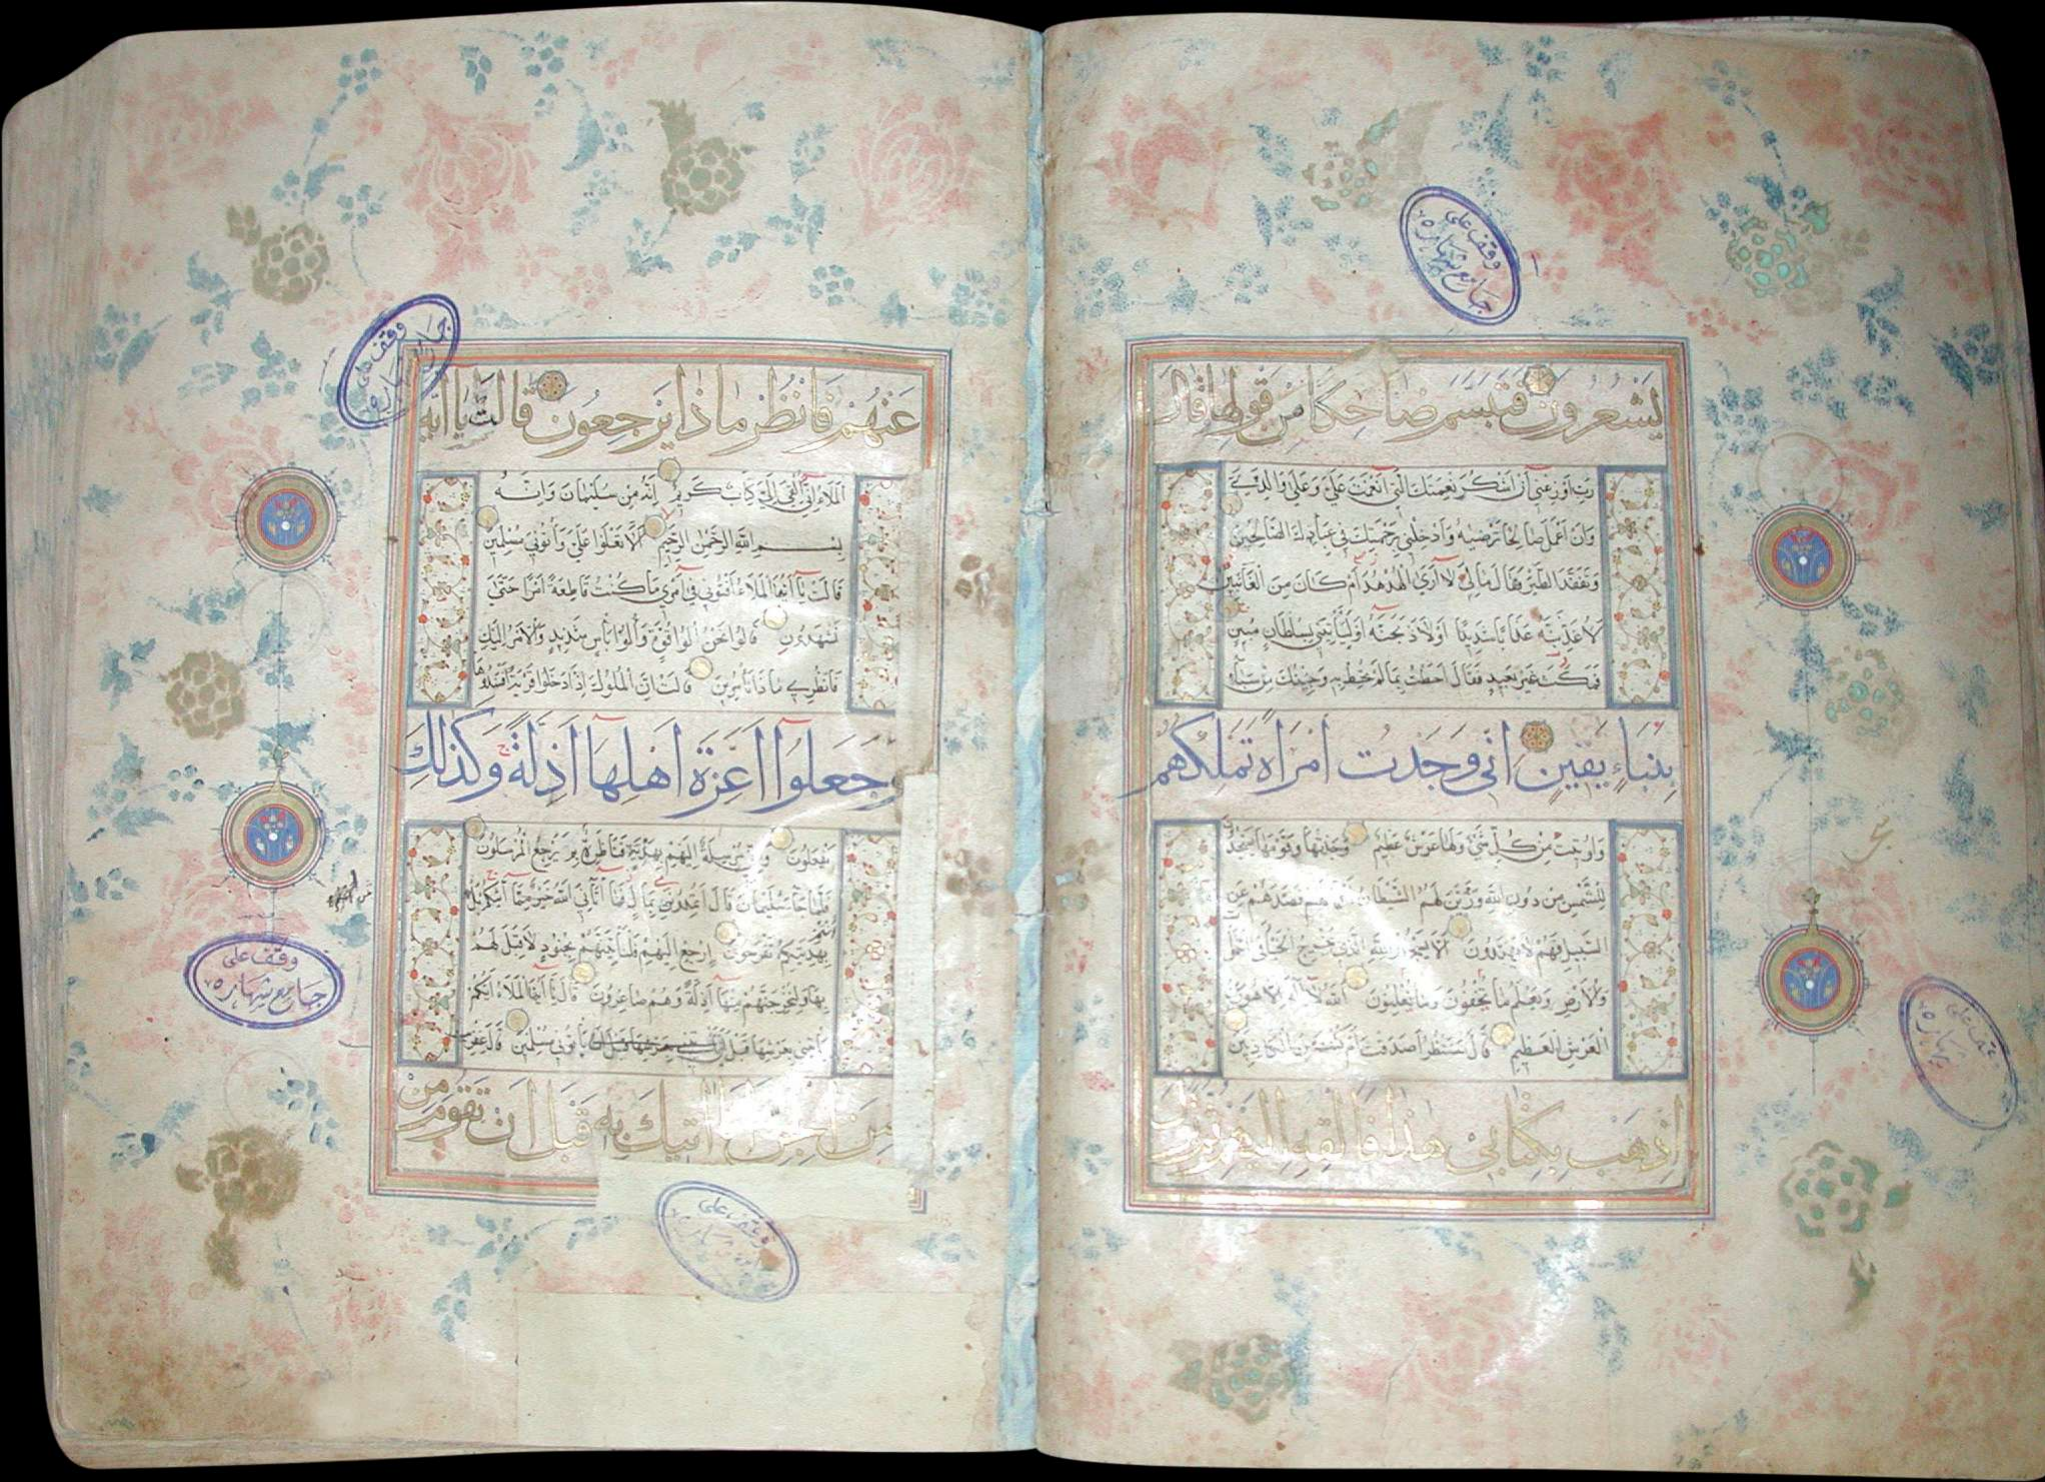 يَشْعُرُونَ فتبسم ضاحكا من قولها وقال
رب اوزعني آن اشكر نعمتك التي انعمت علي وعلى والدي
وان اعمل صالحا ترضيه وادخلني برحمتك في عبادك الصالحين
وتفقد الطير فقال مالي لا اري الهدهد ام كان من الغائبين
لاعذبنه عذابا شديدا اولاذبحنه اوليأتيني بسلطان مبين
فمكث غير بعيد فقال احطت بمالم تحط به وجئتك من سبأ
بنباء يقين اني وجدت امراة تملكهم
واوتيت من كل شئ ولها عرش عظيم وجدتها وقومها يسجدون
للشمس من دون الله وزين لهم الشيطان فصدهم عن
السبيل فهم لا يهتدون الا يسجدوا لله الذي يخرج الخبأ في
والارض ويعلم ما تخفون وما تعلنون الله لا اله الا هو رب
العرش العظيم قال سننظر اصدقت ام كنت من الكاذبين
اذهب بكتابي هذا فالقه اليهم ثم تول
عنهم فانظر ماذا يرجعون قالت يا ايها
الملاء اني القي الي كتاب كريم انه من سليمان وانه
بسم الله الرحمن الرحيم الا تعلوا علي وأتوني مسلمين
قالت يا ايها الملاء افتوني في امري ما كنت قاطعة امرا حتى
تشهدون قالوا نحن اولوا قوة واولوا بأس شديد والامر اليك
فانظري ماذا تأمرين قالت ان الملوك اذا دخلوا قرية افسدوها
وجعلوا اعزة اهلها اذلة وكذلك
يفعلون واني مرسلة اليهم بهدية فناظرة بم يرجع المرسلون
فلما جاء سليمان قال اتمدونني بمال فما آتاني الله خير مما آتيكم بل
انتم
بهديتكم تفرحون ارجع اليهم فلنأتينهم بجنود لا قبل لهم
بها ولنخرجنهم منها اذلة وهم صاغرون قال يا ايها الملاء ايكم
يأتيني بعرشها قبل ان يأتوني مسلمين قال عفريت
من الجن انا اتيك به قبل ان تقوم من
وقف على
جامع شهاره
وقف على
وقف على
جامع شهاره
وقف على